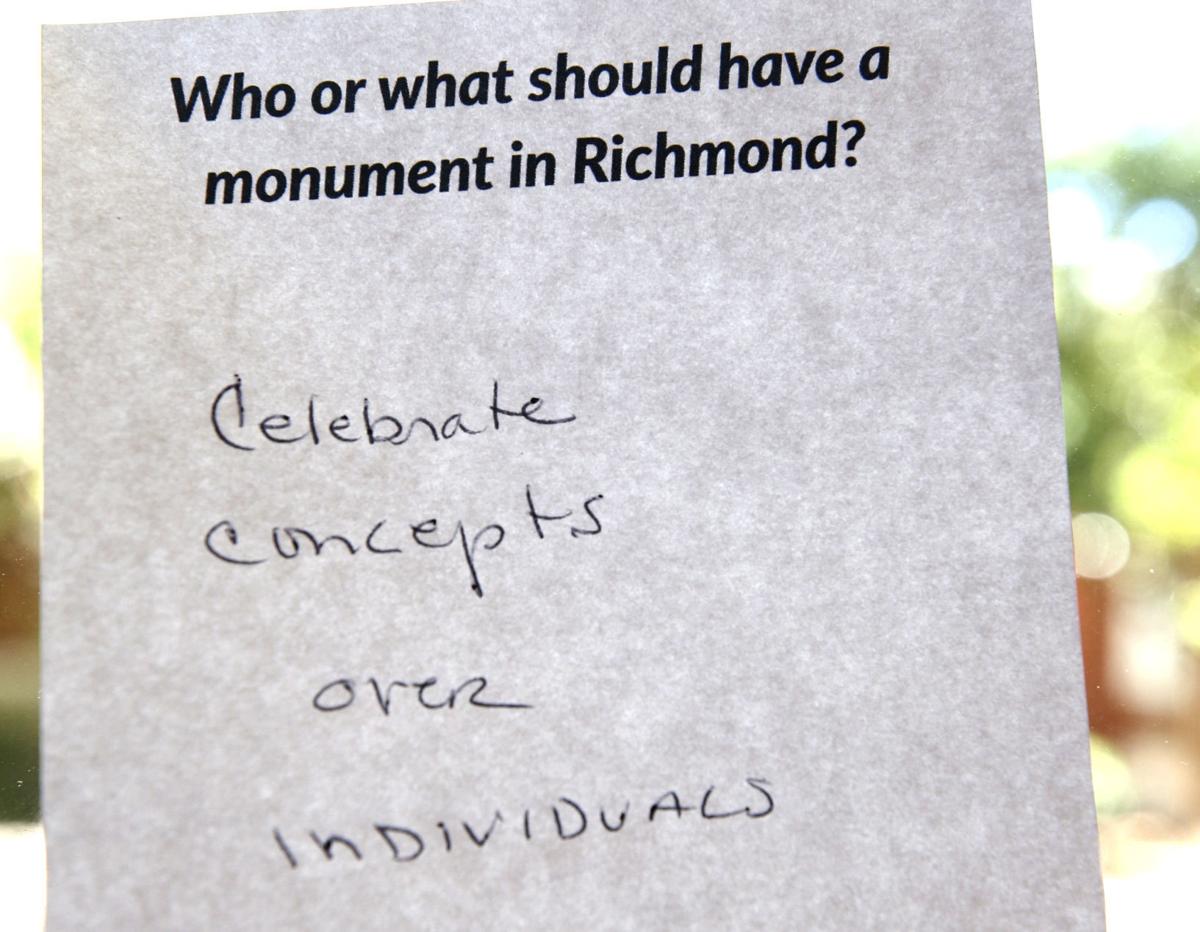 Who or what should have a
monument in Richmond?
Celebrate
concepts
over
INDIVIDUALS